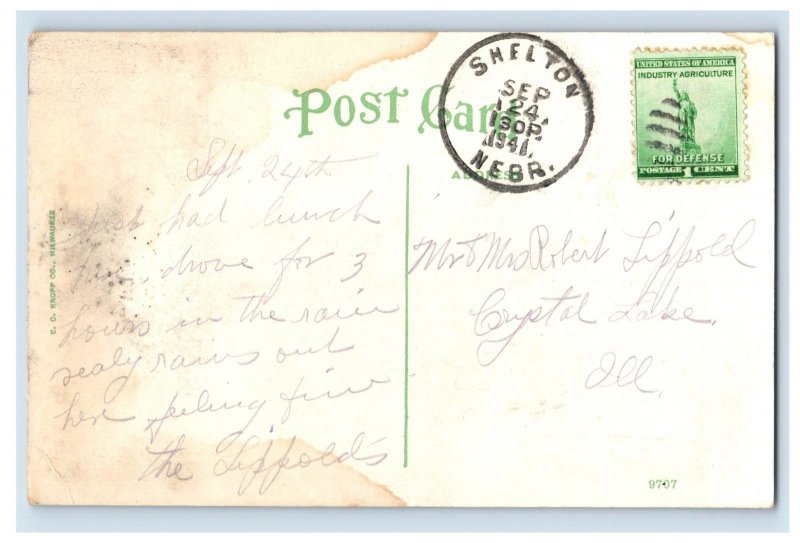 POST CARD
SHELTON
SEP
24
130P
1941
NEBR.
UNITED STATES OF AMERICA
INDUSTRY-AGRICULTURE
FOR DEFENSE
POSTAGE 1 CENT
ADDRESS
E. C. KROPP CO., MILWAUKEE
Sept. 24th
Just had lunch
here, drove for 3
hours in the rain
realy rains out
here feeling fine
the Lippold's
Mr & Mrs Robert Lippold
Crystal Lake,
Ill.
9707